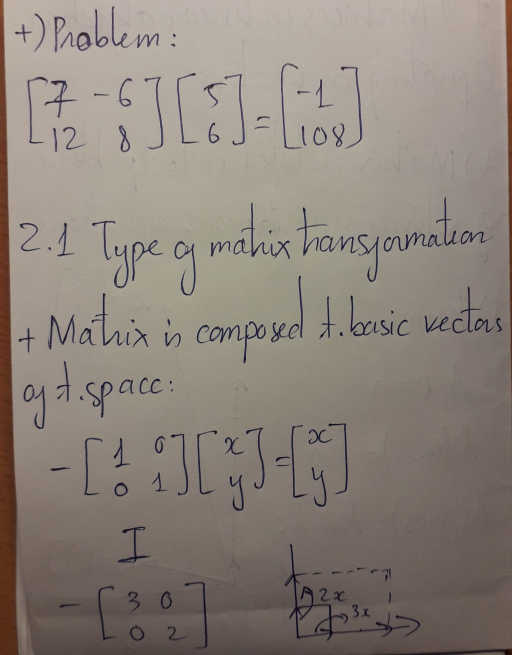 +) Problem:
[7 -6] [5] = [-1]
[12 8] [6] [108]
2.1 Type of matrix transformation
+ Matrix is composed t. basic vectors
of t. space:
- [1 0] [x] = [x]
[0 1] [y] [y]
I
- [3 0]
[0 2]
2x
3x